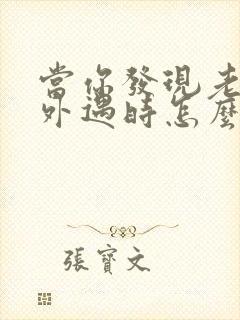 當你發現老
外遇時怎麼
張寶文